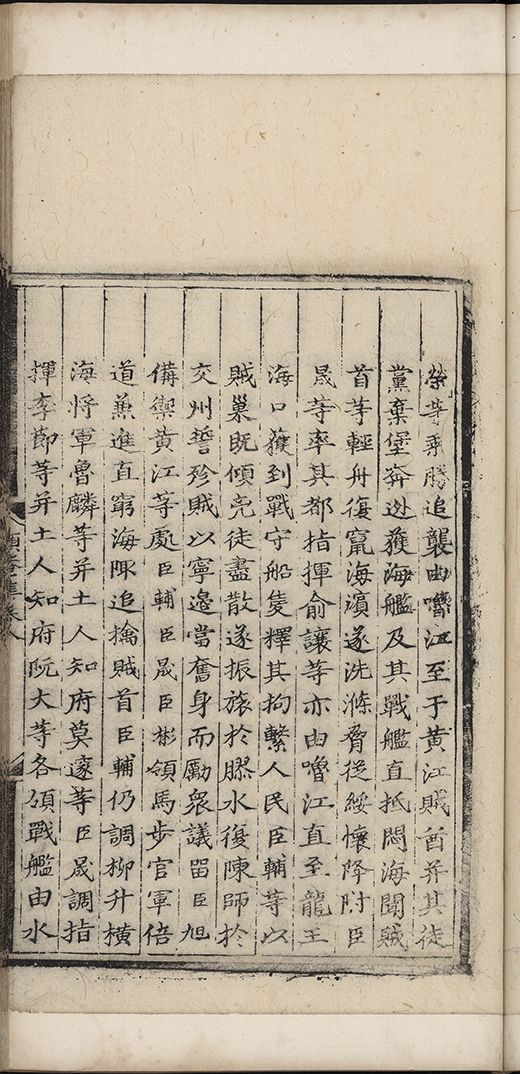 榮等乘勝追襲由嚕江至于黃江賊酋并其徒
黨棄堡奔逊獲海艦及其戰艦直抵悶海聞賊
首等輕舟復竄海濵遂洗滌脅從綏懷降附臣
晟等率其都指揮俞讓等亦由嚕江直至龍王
海口獲到戰守船隻擇其拘繫人民臣輔等以
賊巢既傾克徒盡散遂振旅於膠水復陳師於
交州誓殄賊以寧邊當奮身而勵衆議留臣旭
備禦黃江等處臣輔臣晟臣彬領馬步官軍倍
道蒹進直窮海陬追擒賊首臣輔仍調柳升橫
海將軍魯麟等并土人知府莫邃等臣晟調指
揮李節等并土人知府阮大等各領戰艦由水